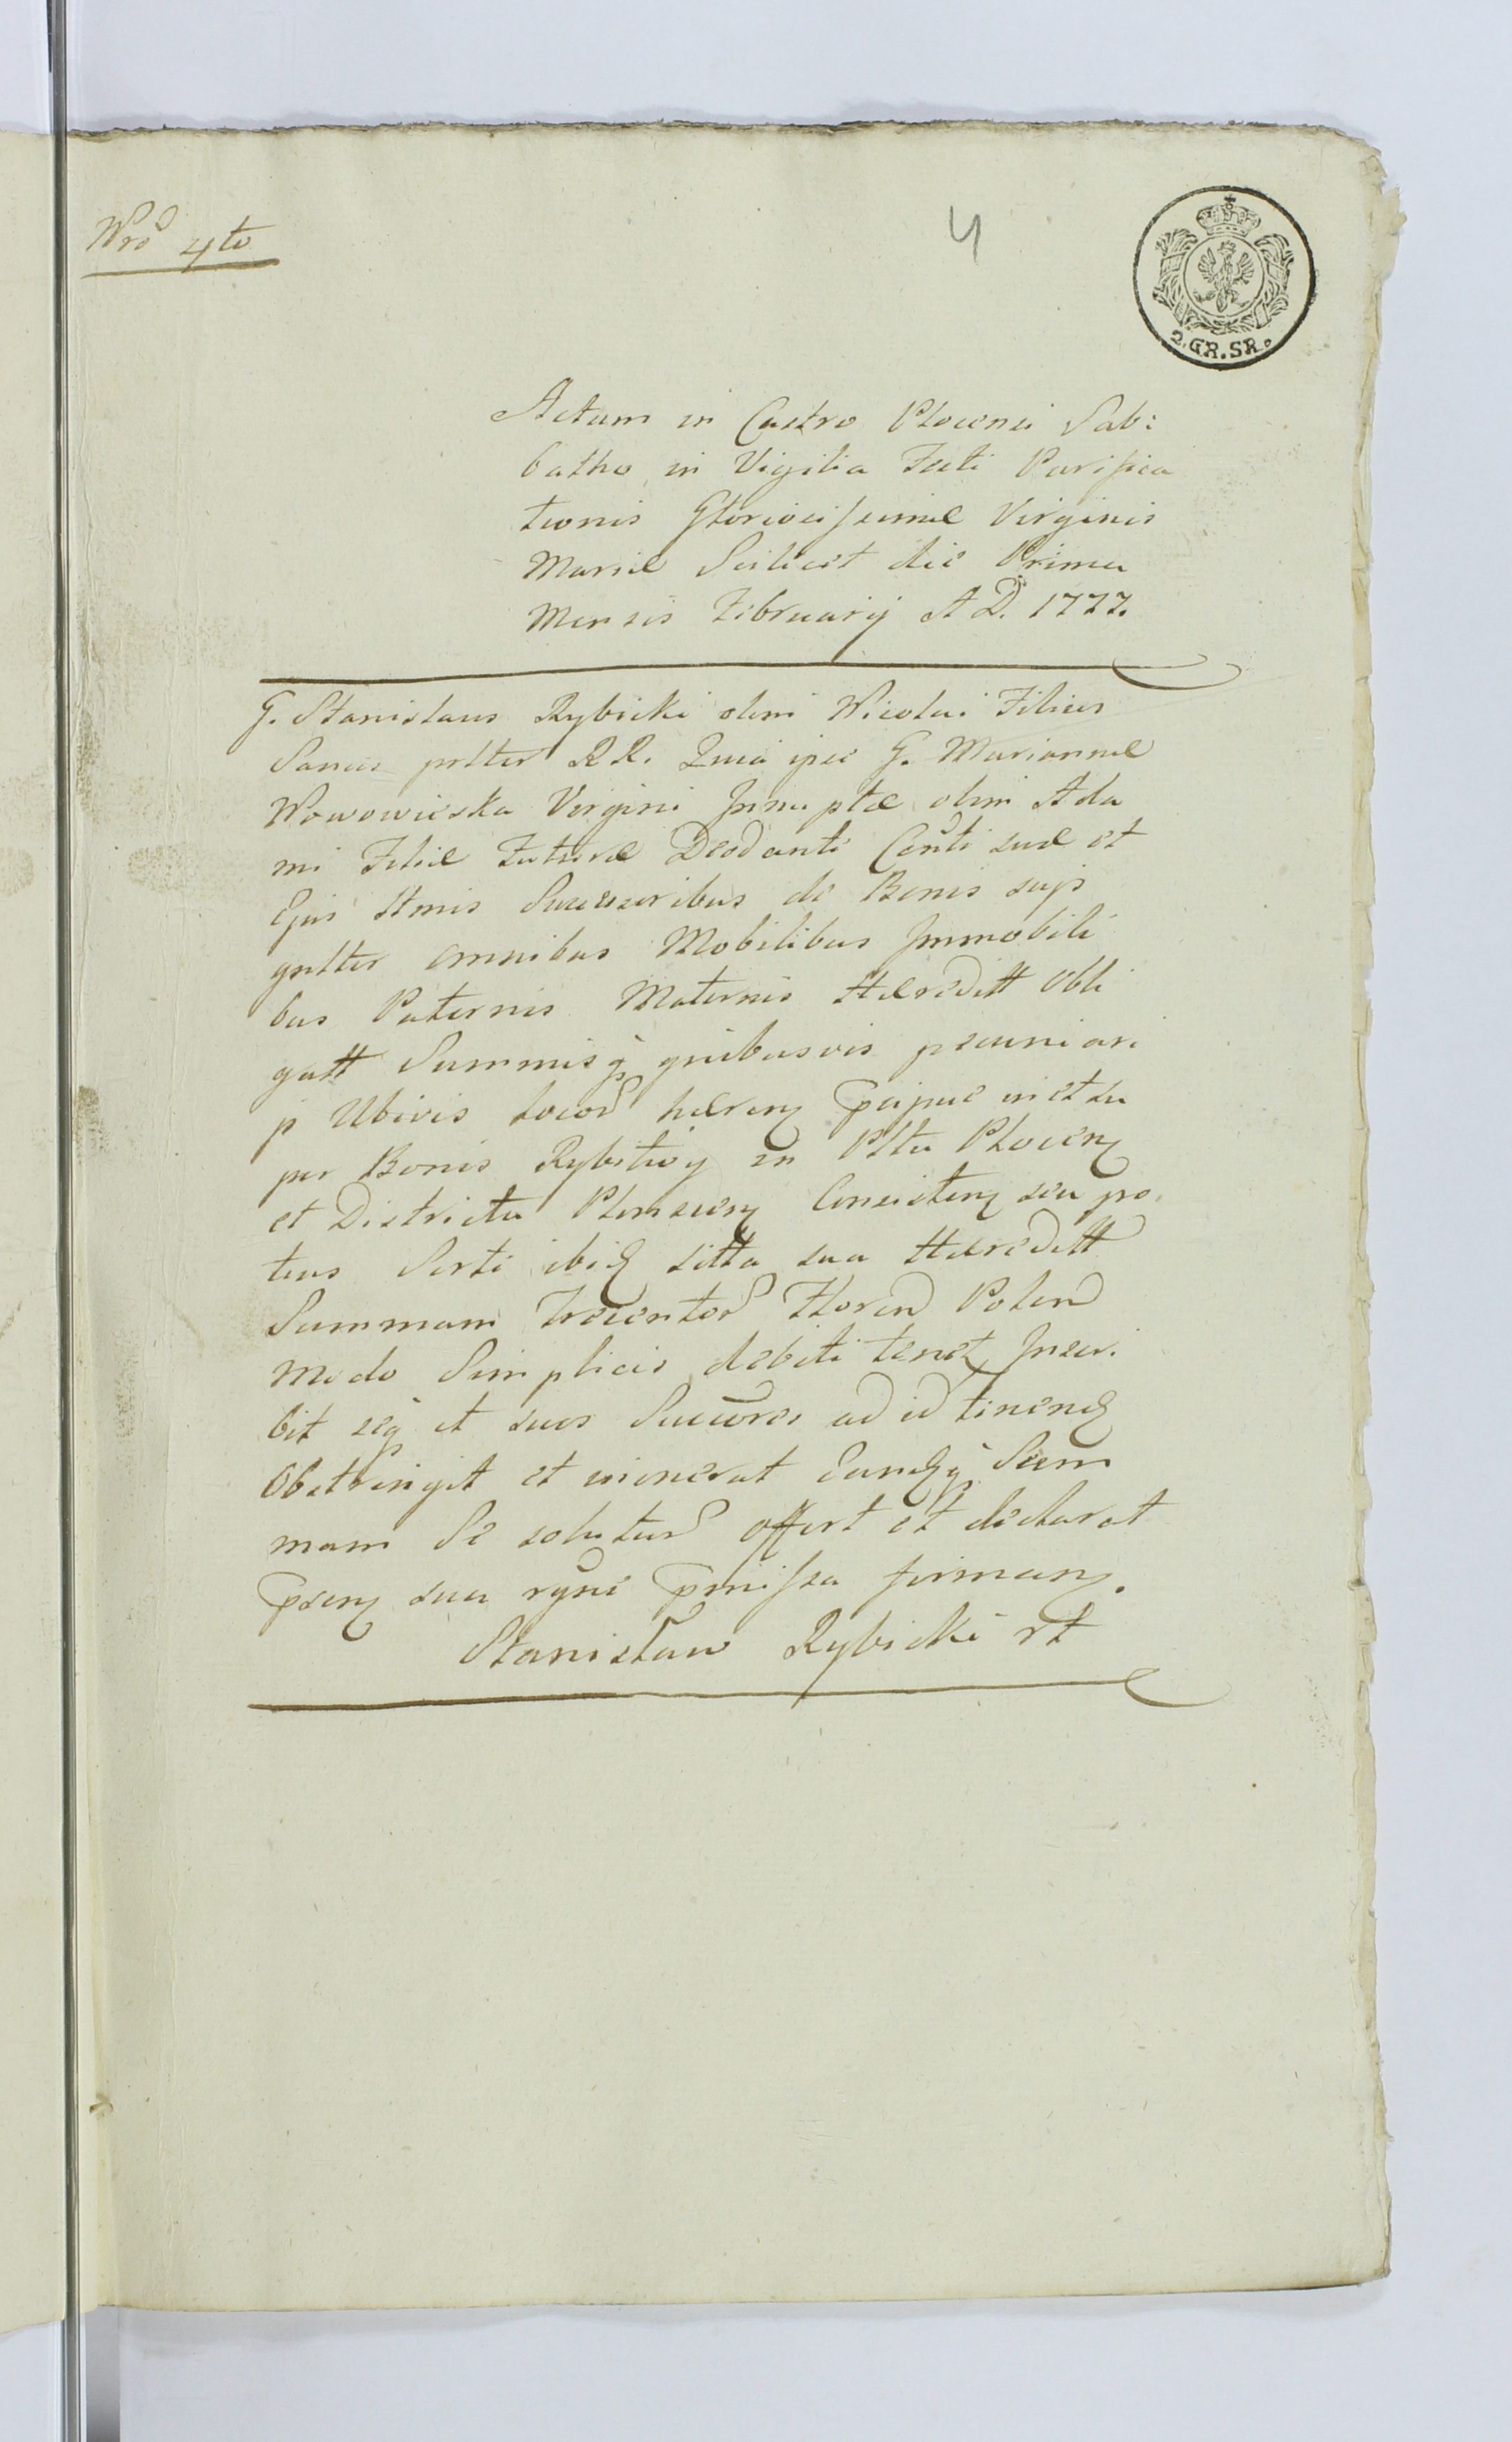 Nro 4to
4
2. GR. SR.
Actum in Castro Plocensi Sab:
batho in Vigilia Festi Purifica
tionis Gloriosissimæ Virginis
Mariæ Scilicet die Prima
Mensis Februarij A D. 1777.
G. Stanislaus Rybicki olim Nicolai Filius
Sanus prtter RR. Quia ipse G. Mariannæ
Nowowieska Virgini Innuptæ olim Ada
mi Filiæ Futuræ Deodante Conti suæ et
Ejus Ltmis Successoribus de Bonis suis
gnltter omnibus Mobilibus Immobili
bus Paternis Maternis Hæreditt Obli
gatt Summisq quibusvis pecuniari
p Ubivis locor hæren pcipue in et su
per Bonis Rybitwy in Pltu Plocen
et Districtu Plonscen Consisten seu po.
tius Sorti ibid sitta sua Hæreditt
Summam Trecentor Floren Polon
Modo Simplicis debiti tenet, Inscri.
bit seq et suos Succores ad id tinend
Obstringit et inonerat Eamdq Sum
mam Se solutur offert et declarat
psen sua rgne pmissa firman.
Stanisław Rybicki rt